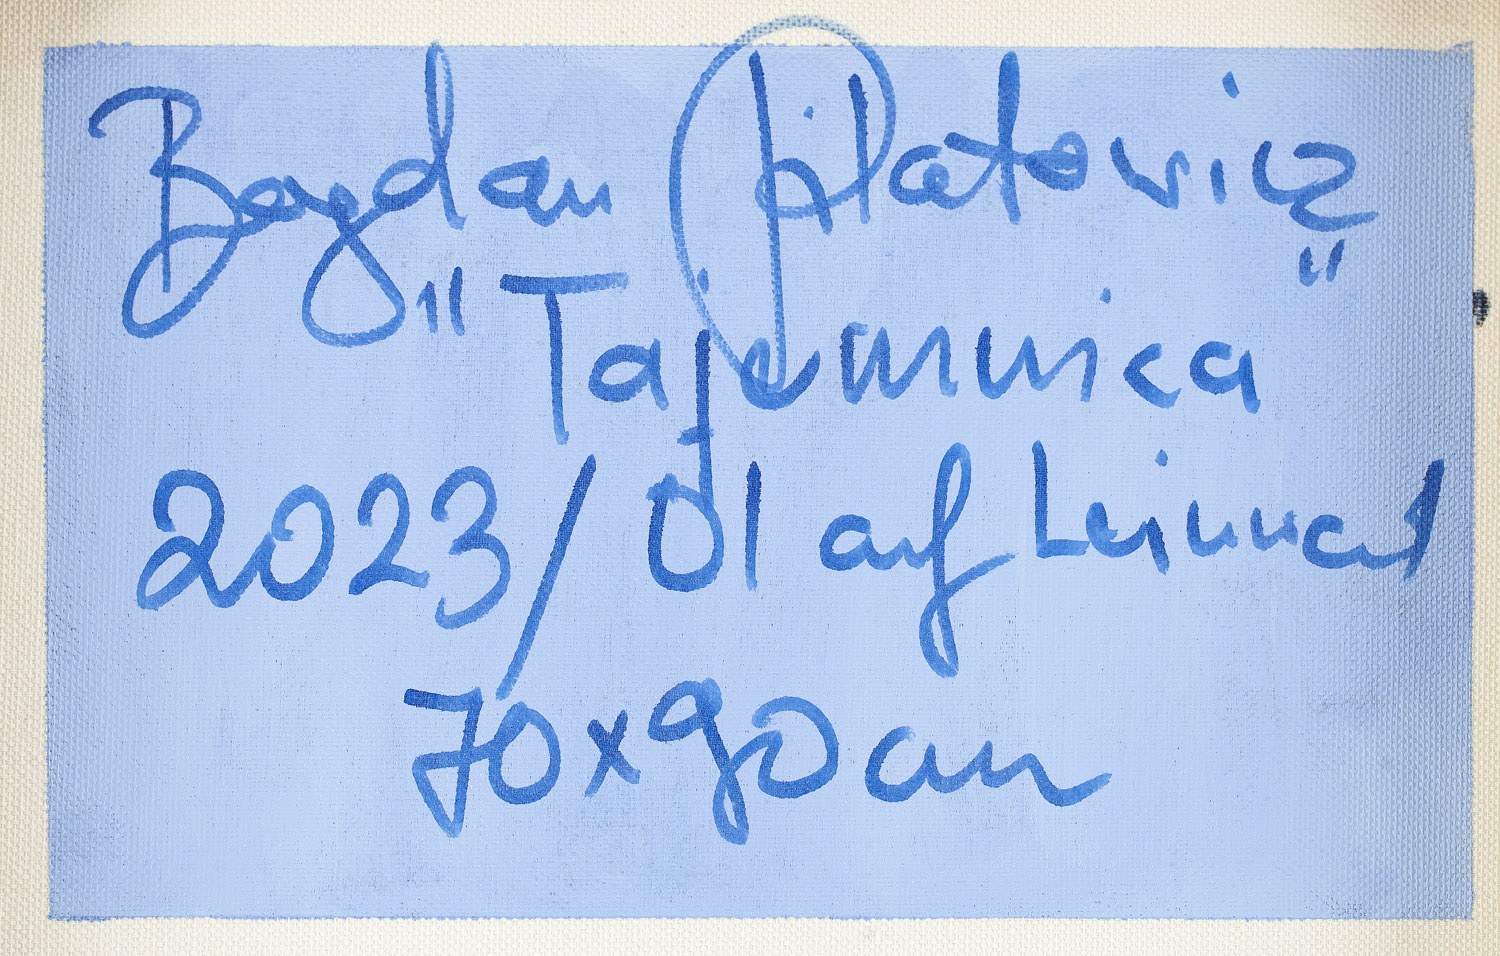 Bogdan Pilatowicz
"Tajemnica"
2023/Öl auf Leinwand
70x90cm